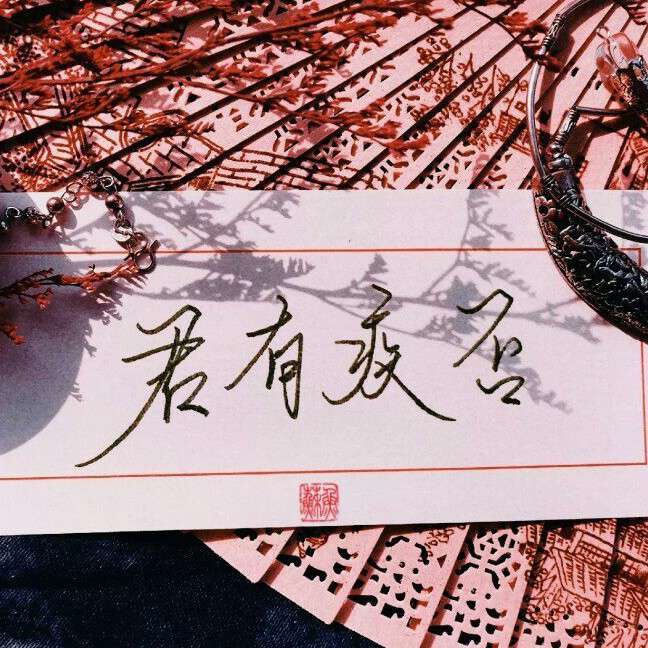 君有疾否